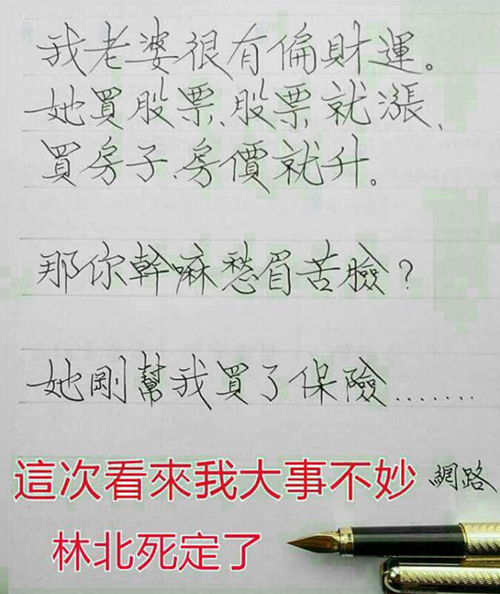 我老婆很有偏財運。
她買股票、股票就漲、
買房子、房價就升。
那你幹嘛愁眉苦臉？
她剛幫我買了保險........
這次看來我大事不妙
網路
林北死定了